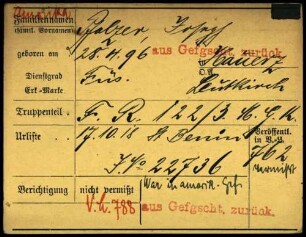 Amerika
Familiennamen
(sämtl. Vornamen) Balzer Josef
geboren am 28.4.96 aus Gefgscht. zurück.
Dienstgrad Füs. Hauerz
Erk-Marke Leutkirch
Truppenteil F. R. 122/3. M. G. K.
Urliste 17.10.18 St Benin Veröffentl.
in V.-L.
J No 22736 762
vermißt
Berichtigung nicht vermißt War in amerik. Gef.
V.L. 788 aus Gefgscht. zurück.